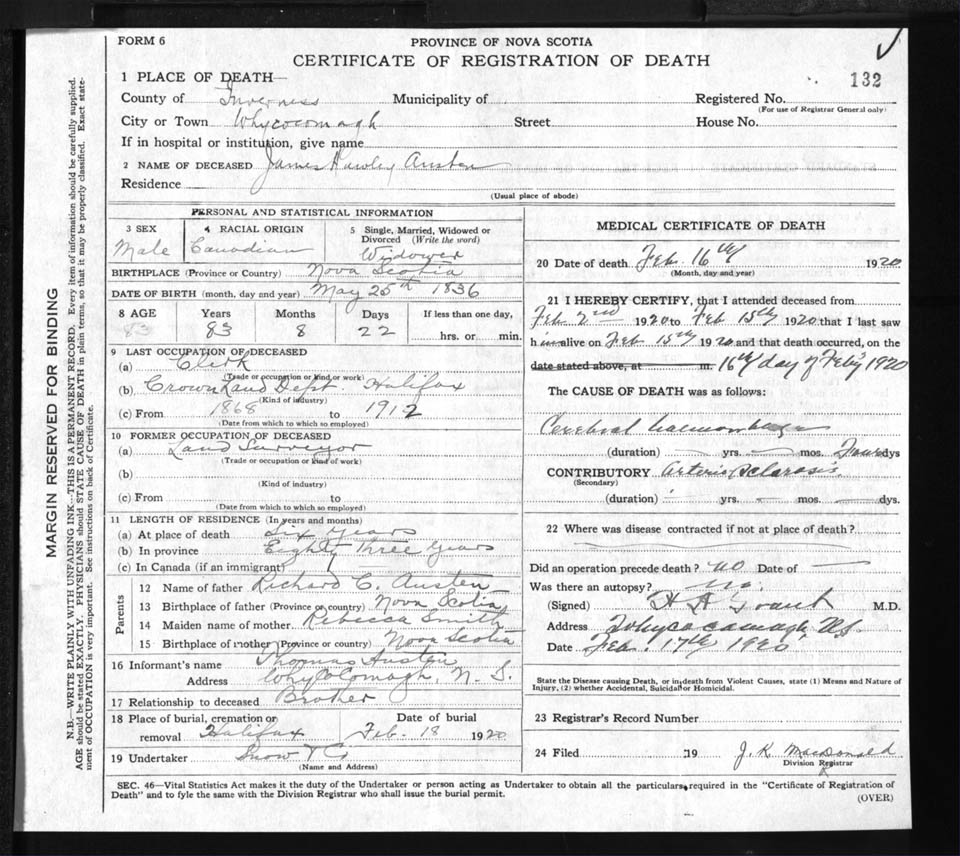 FORM 6
PROVINCE OF NOVA SCOTIA
CERTIFICATE OF REGISTRATION OF DEATH
132
1 PLACE OF DEATH—
County of Inverness Municipality of Registered No.
(For use of Registrar General only)
City or Town Whycocomagh Street House No.
If in hospital or institution, give name
2 NAME OF DECEASED James Austen
Residence
(Usual place of abode)
MARGIN RESERVED FOR BINDING
N.B.—WRITE PLAINLY WITH UNFADING INK—THIS IS A PERMANENT RECORD. Every item of information should be carefully supplied.
AGE should be stated EXACTLY. PHYSICIANS should STATE CAUSE OF DEATH in plain terms, so that it may be properly classified. Exact state-
ment of OCCUPATION is very important. See instructions on back of Certificate.
PERSONAL AND STATISTICAL INFORMATION
3 SEX 4 RACIAL ORIGIN 5 Single, Married, Widowed or
Divorced (Write the word)
Male Canadian Widower
BIRTHPLACE (Province or Country) Nova Scotia
DATE OF BIRTH (month, day and year) May 25th 1836
8 AGE Years Months Days If less than one day,
83 83 8 22 hrs. or min.
9 LAST OCCUPATION OF DECEASED
(a) Clerk
(Trade or occupation or kind or work)
(b) Crown Land Dept. Halifax
(Kind of industry)
(c) From 1868 to 1912
(Date from which to which so employed)
10 FORMER OCCUPATION OF DECEASED
(a) Land Surveyor
(Trade or occupation or kind of work)
(b)
(Kind of industry)
(c) From to
(Date from which to which so employed)
11 LENGTH OF RESIDENCE (In years and months)
(a) At place of death Six years
(b) In province Eighty Three Years
(c) In Canada (if an immigrant)
Parents
12 Name of father Richard C. Austen
13 Birthplace of father (Province or country) Nova Scotia
14 Maiden name of mother Rebecca Smith
15 Birthplace of mother (Province or country) Nova Scotia
16 Informant's name Thomas Austen
Address Whycocomagh, N. S.
17 Relationship to deceased Brother
18 Place of burial, cremation or Date of burial
removal Halifax Feb. 18 1920
19 Undertaker Snow & Co
(Name and Address)
MEDICAL CERTIFICATE OF DEATH
20 Date of death Feb. 16th 1920
(Month, day and year)
21 I HEREBY CERTIFY, that I attended deceased from
Feb 2nd 1920 to Feb 15th 1920 that I last saw
him alive on Feb 15th 1920 and that death occurred, on the
date stated above, at m. 16th day of Feb'y 1920
The CAUSE OF DEATH was as follows:
Cerebral haemorrhage
(duration) yrs. mos. Four dys
CONTRIBUTORY Arterio Sclerosis
(Secondary)
(duration) yrs. mos. dys.
22 Where was disease contracted if not at place of death?
Did an operation precede death? no Date of
Was there an autopsy? no.
(Signed) H A Grant M.D.
Address Whycocomagh NS
Date Feb. 17th 1920
State the Disease causing Death, or in death from Violent Causes, state (1) Means and Nature of
Injury, (2) whether Accidental, Suicidal or Homicidal.
23 Registrar's Record Number
24 Filed 19 J. K. MacDonald
Division Registrar
SEC. 46—Vital Statistics Act makes it the duty of the Undertaker or person acting as Undertaker to obtain all the particulars required in the "Certificate of Registration of
Death" and to fyle the same with the Division Registrar who shall issue the burial permit.
(OVER)